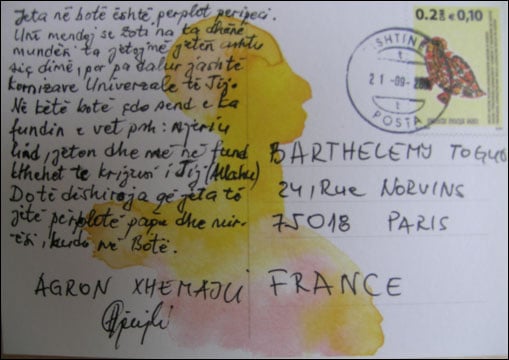 Jeta në botë është perplot peripeci.
Unë mendoj se Zoti na ka dhënë
mundësi ta jetojmë jetën ashtu
siç dimë, por pa dalur jashtë
kornizave Univerzale të Tij.
Në këtë botë çdo send e ka
fundin e vet psh: njeriu
lind, jeton dhe më në fund
kthehet te krijuesi i Tij (Allahu)
Do të dëshiroja që jeta të
jetë përplotë paqe dhe mir-
ësi, kudo në Botë.
AGRON XHEMAJLI
0.28 € 0,10
21-09-
POSTA
BARTHELEMY TOGUO
24, Rue NORVINS
75018 PARIS
FRANCE